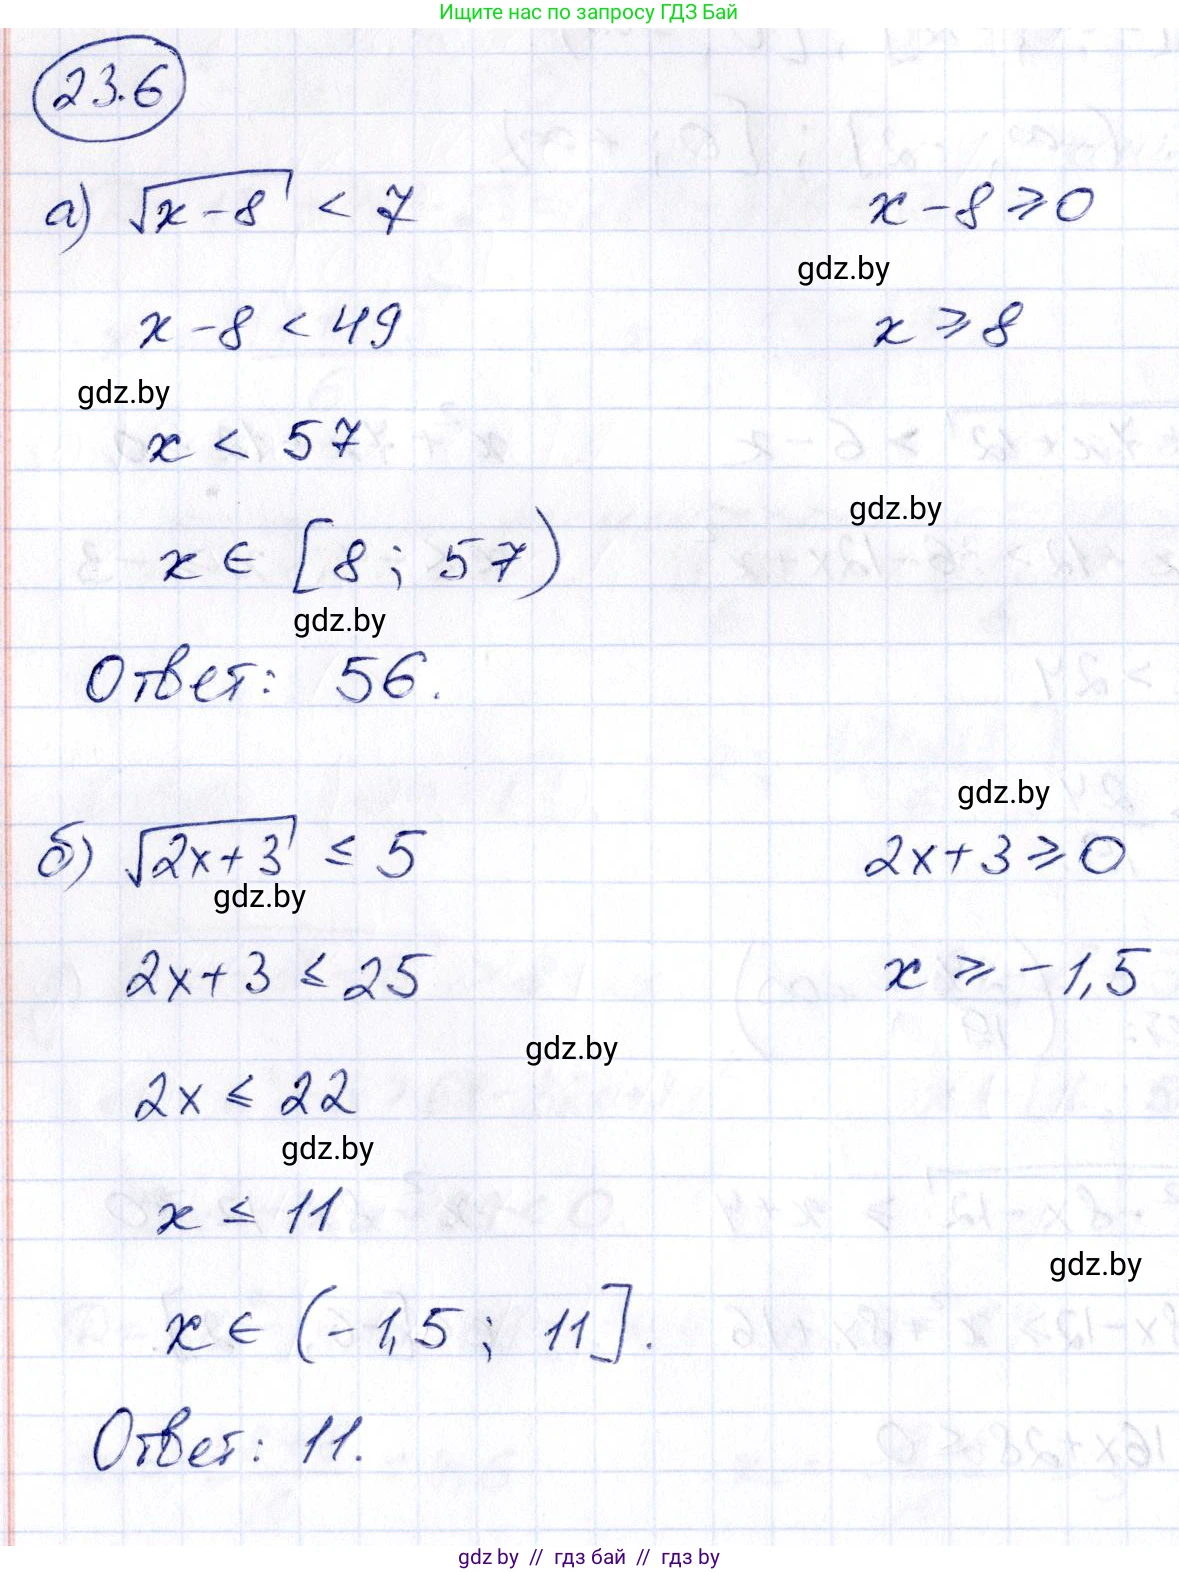 Ищите нас по запросу ГДЗ Бай
23.6
а) √(x-8) < 7
x-8 ≥ 0
gdz.by
x-8 < 49
x ≥ 8
gdz.by
x < 57
gdz.by
x ∈ [8; 57)
gdz.by
Ответ: 56.
gdz.by
б) √(2x+3) ≤ 5
2x+3 ≥ 0
gdz.by
2x+3 ≤ 25
x ≥ -1,5
gdz.by
2x ≤ 22
gdz.by
x ≤ 11
gdz.by
x ∈ (-1,5; 11].
Ответ: 11.
gdz.by // гдз бай // гдз by